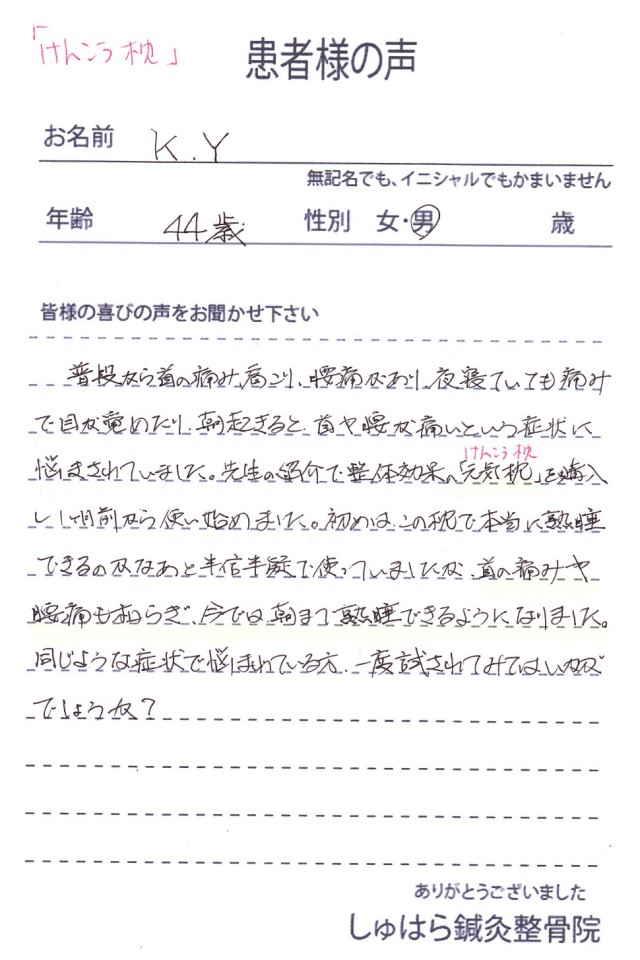 「けんこう枕」
患者様の声
お名前 K.Y
無記名でも、イニシャルでもかまいません
年齢 44歳 性別 女・男 歳
皆様の喜びの声をお聞かせ下さい
普段から首の痛み、肩こり、腰痛があり、夜寝ていても痛み
で目が覚めたり、朝起きると、首や腰が痛いという症状に
けんこう枕
悩まされていました。先生の紹介で整体効果の「元気枕」を購入
し1ヶ月前から使い始めました。初めは、この枕で本当に熟睡
できるのかなあと半信半疑で使っていましたが、首の痛みや
腰痛も和らぎ、今では朝まで熟睡できるようになりました。
同じような症状で悩まれている方、一度試されてみてはいかが
でしょうか？
ありがとうございました
しゅはら鍼灸整骨院